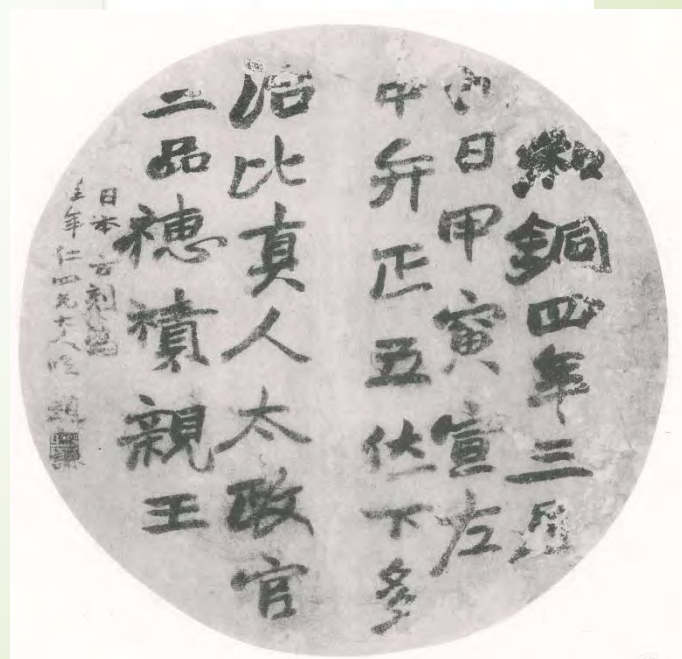 和銅四年三月
九日甲寅宣左
中弁正五位下多
治比真人太政官
二品穂積親王
日本古刻
年仁四兄大人